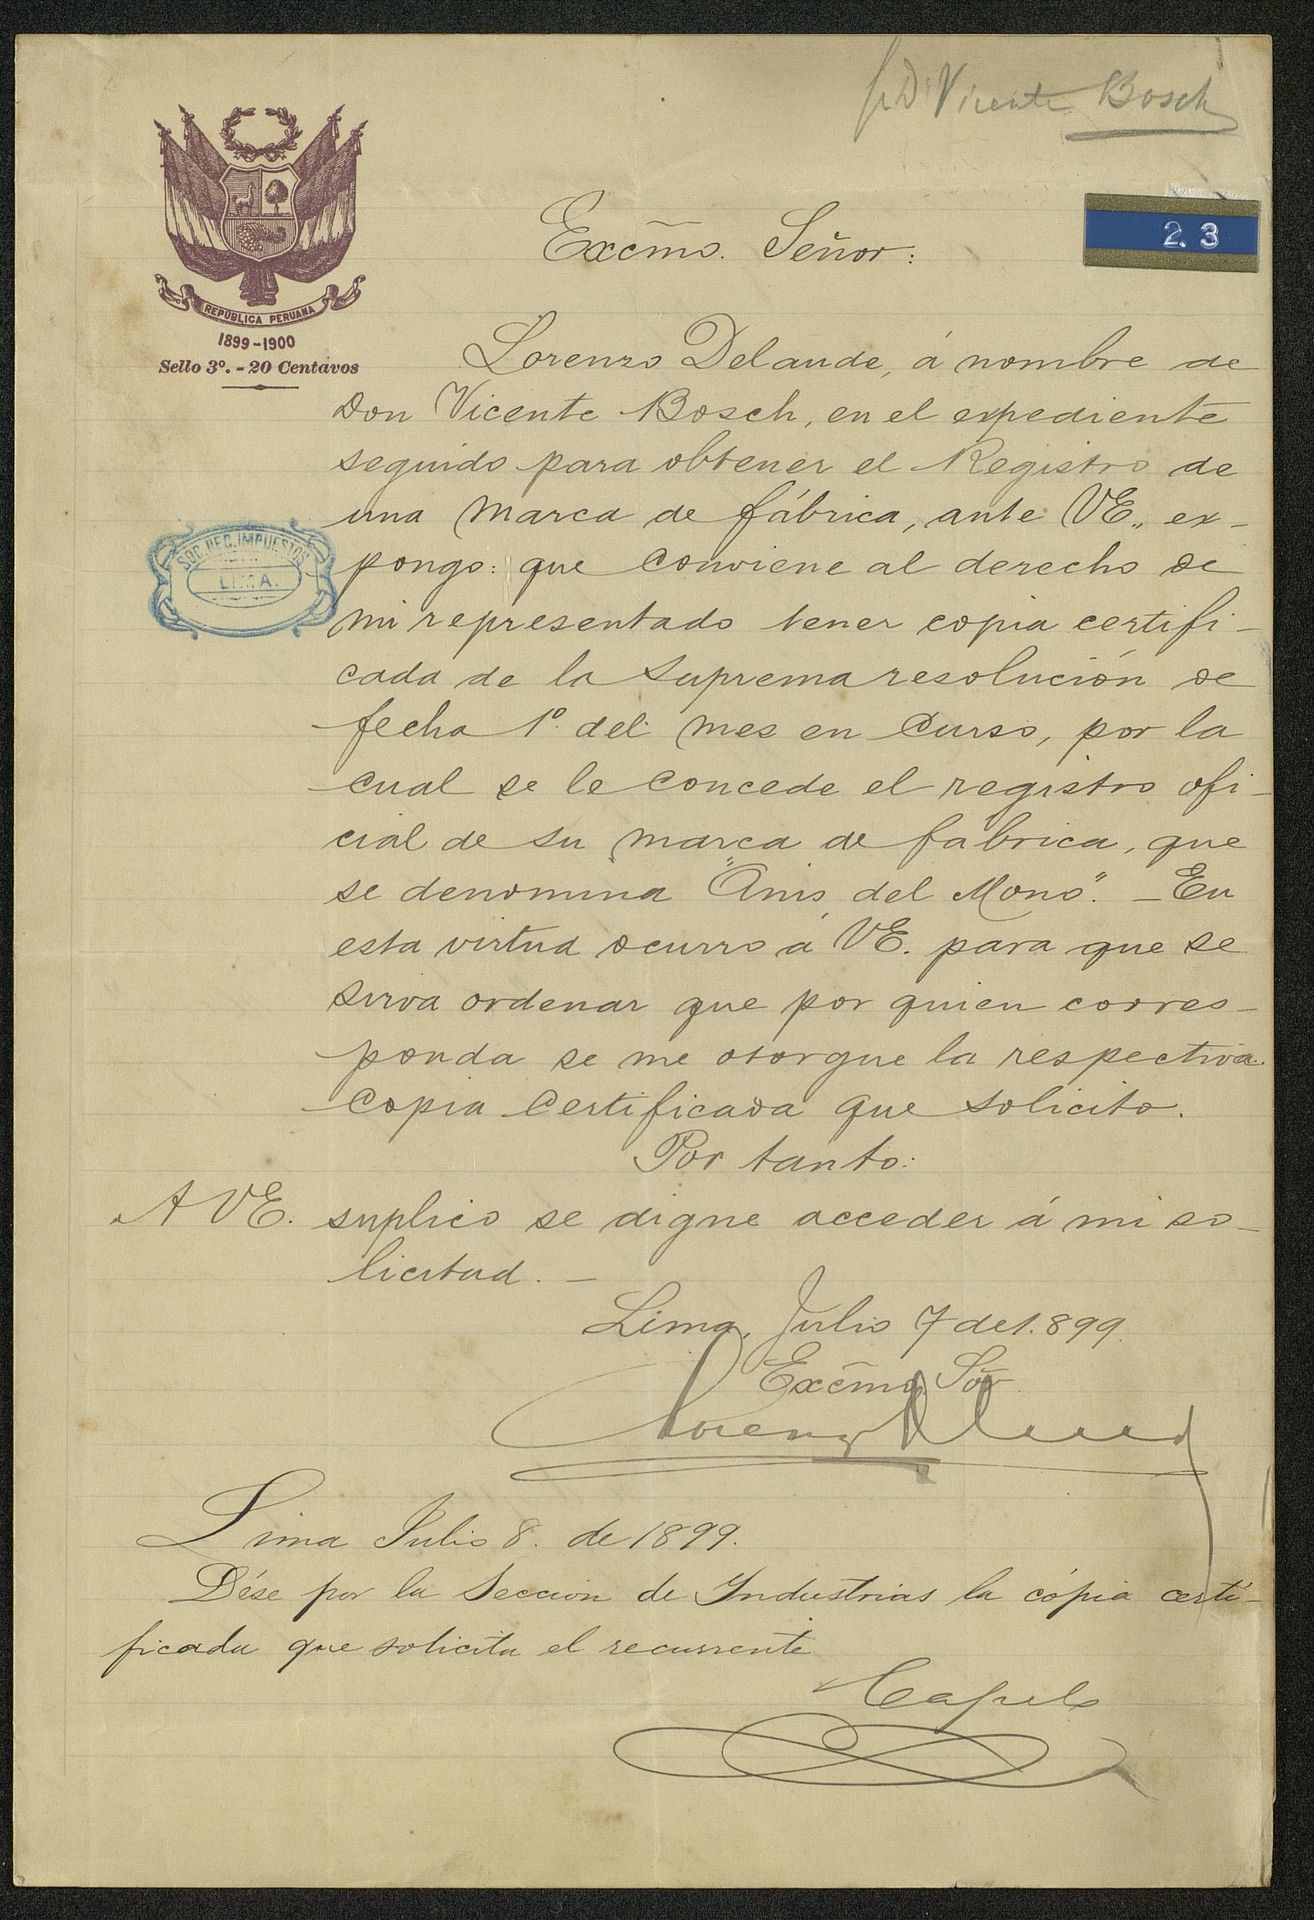 Sr Dn Vicente Bosch
2.3
REPÚBLICA PERUANA
1899-1900
Sello 3º. - 20 Centavos
Excmo. Señor:
Lorenzo Delaude, á nombre de
Don Vicente Bosch, en el expediente
seguido para obtener el Registro de
una marca de fábrica, ante VE., ex-
pongo: que conviene al derecho de
SOC. REC. IMPUESTOS
LIMA.
mi representado tener copia certifi-
cada de la suprema resolución de
fecha 1º. del mes en curso, por la
cual se le concede el registro ofi-
cial de su marca de fabrica, que
se denomina "Anis del Mono". - En
esta virtud ocurro á VE. para que se
sirva ordenar que por quien corres-
ponda se me otorgue la respectiva
copia certificada que solicito.
Por tanto:
A VE. suplico se digne acceder á mi so-
licitud. -
Lima, Julio 7 de 1.899.
Excmo Sor
Lorenzo Delaude
Lima Julio 8. de 1899.
Dése por la Sección de Industrias la cópia certi-
ficada que solicita el recurrente
Capelo